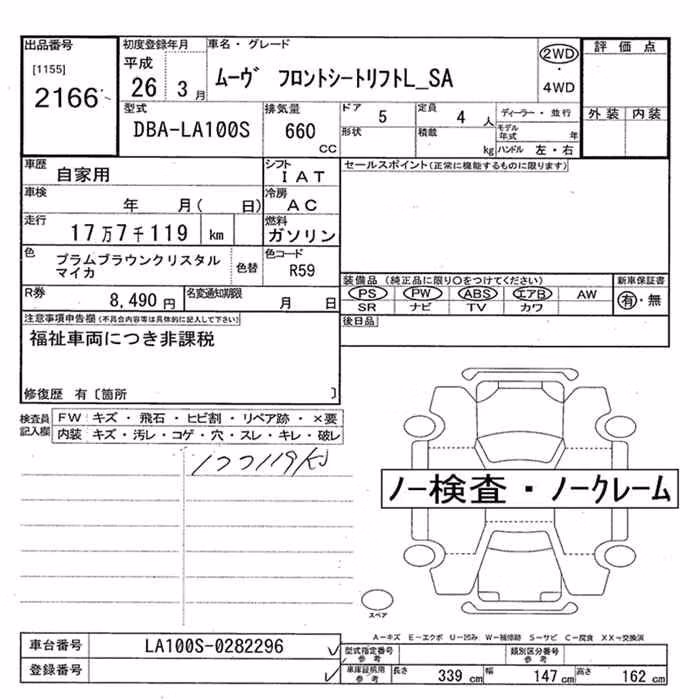 出品番号
[1155]
2166
初度登録年月
平成
26 3 月
車名・グレード
ムーヴ フロントシートリフトL_SA
2WD
・
4WD
評価点
外装 内装
型式
DBA-LA100S
排気量
660
CC
ドア 5
形状
定員 4 人
積載 kg
ディーラー・並行
モデル年式 年
ハンドル 左・右
車歴
自家用
シフト
IAT
セールスポイント(正常に機能するものに限ります)
車検
年 月( 日)
冷房
AC
走行
17万7千119 km
燃料
ガソリン
色
プラムブラウンクリスタル
マイカ
色替
色コード
R59
装備品 (純正品に限り○をつけてください)
新車保証書
PS PW ABS エアB AW
有・無
SR ナビ TV カワ
R券
8,490 円
名変通知期限
月 日
後日品
注意事項申告欄(不具合内容等は具体的に記入して下さい)
福祉車両につき非課税
修復歴 有〔箇所 〕
検査員
記入欄
FW キズ・飛石・ヒビ割・リペア跡・×要
内装 キズ・汚レ・コゲ・穴・スレ・キレ・破レ
177119KM
ノー検査・ノークレーム
スペア
A-キズ E-エクボ U-凹み W-補修跡 S-サビ C-腐食 XX-交換済
車台番号
LA100S-0282296
登録番号
型式指定番号
参考
類別区分番号
参考
車庫証明用
参考
長さ 339 cm 幅 147 cm 高さ 162 cm